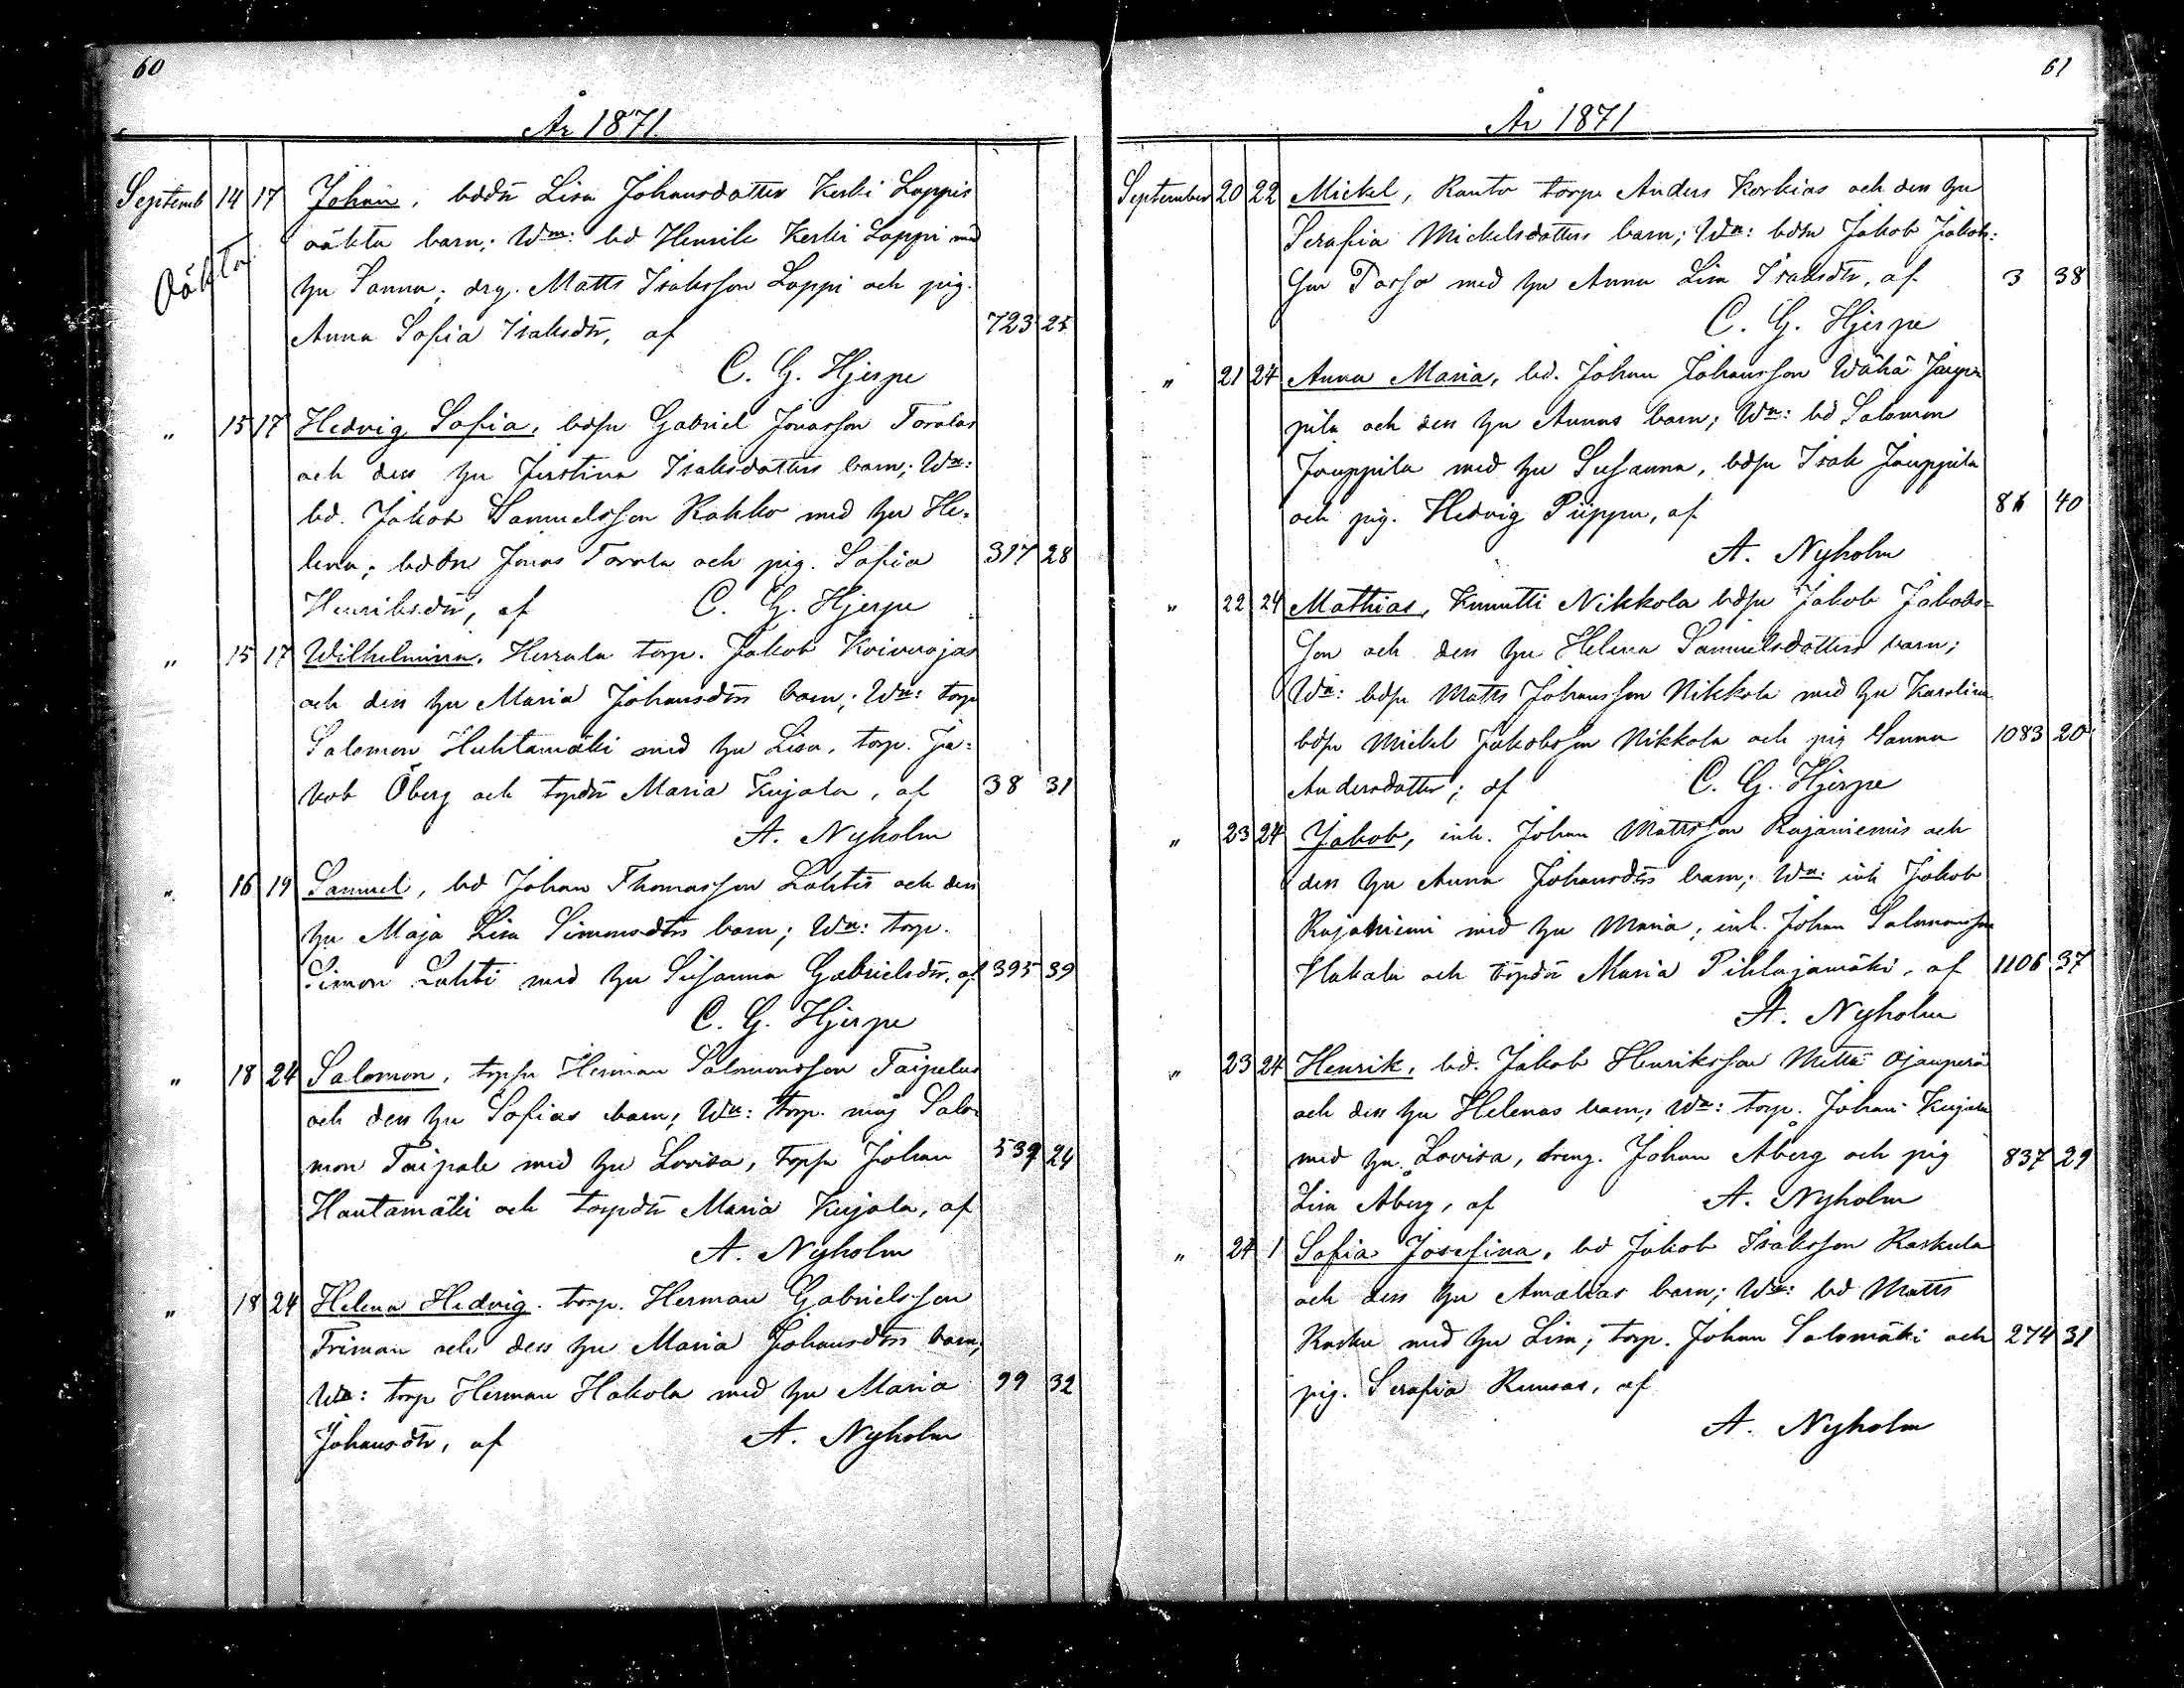 60
År 1871
Septemb 14 17 Johan, bddtr Lisa Johansdotters Keski Loppis
oäkta barn; Wn: bd Henrik Keski Loppi med
Oäkta
hu Sanna; drg. Matts Isaksson Loppi och pig.
Anna Sofia Isaksdtr, af 723 25
C. G. Hjerpe
" 15 17 Hedvig Sofia, bdsn Gabriel Jonasson Toralas
och dess hu Justina Isaksdotters barn; Wn:
bd. Jakob Samuelsson Kokko med hu He-
lena; bdsn Jonas Torala och pig. Sofia 317 28
Henriksdtr, af C. G. Hjerpe
" 15 17 Wilhelmina, Herrala torp. Jakob Koivuojas
och dess hu Maria Johansdtrs barn; Wn: torp
Salomon Huhtamäki med hu Lisa, torp. Ja-
kob Öberg och tpdtr Maria Kujala, af 38 31
A. Nyholm
" 16 19 Samuel, bd Johan Thomasson Lahtis och dess
hu Maja Lisa Simonsdtrs barn; Wn: torp.
Simon Lahti med hu Susanna Gabrielsdtr, af 395 39
C. G. Hjerpe
" 18 24 Salomon, tpsn Herman Salomonsson Taipalus
och dess hu Sofias barn; Wn: torp. måg Salo-
mon Taipale med hu Lovisa, tpsn Johan 539 24
Hautamäki och torpdtr Maria Kujala, af
A. Nyholm
" 18 24 Helena Hedvig, torp. Herman Gabrielsson
Friman och dess hu Maria Johansdtrs barn;
Wn: torp Herman Hakola med hu Maria 99 32
Johansdtr, af A. Nyholm
61
År 1871
September 20 22 Mickel, Ranto torp. Anders Korkias och dess hu
Serafia Mickelsdotters barn; Wn: bdsn Jakob Jakob-
son Passo med hu Anna Lisa Isaksdtr, af 3 38
C. G. Hjerpe
" 21 24 Anna Maria, bd. Johan Johansson Wähä Jaup-
pila och dess hu Annas barn; Wn: bd Salomon
Jauppila med hu Susanna, bdsn Isak Jauppila
och pig. Hedvig Piippu, af 81 40
A. Nyholm
" 22 24 Mathias, Knuutti Nikkola bdsn Jakob Jakobs-
son och dess hu Helena Samuelsdotters barn;
Wn: bdsn Matts Johansson Nikkola med hu Karolina
bdsn Mickel Jakobsson Nikkola och pig Sanna 1083 20
Andersdotter; af C. G. Hjerpe
" 23 24 Jakob, inh. Johan Mattsson Rajaniemis och
dess hu Anna Johansdtrs barn; Wn: inh Jakob
Rajaniemi med hu Maria; inh. Johan Salomonsson
Hakala och tpdtr Maria Pihlajamäki, af 1106 37
A. Nyholm
" 23 24 Henrik, bd. Jakob Henriksson Mettä Ojanperä
och dess hu Helenas barn; Wn: torp. Johan Kujala
med hu Lovisa, dreng. Johan Åberg och pig 837 29
Lisa Åberg, af A. Nyholm
" 24 1 Sofia Josefina, bd Jakob Isaksson Kaskula
och dess hu Amalias barn; Wn: bd Matts
Rasku med hu Lisa; torp. Johan Salomäki och 274 31
pig. Serafia Ruusas, af
A. Nyholm